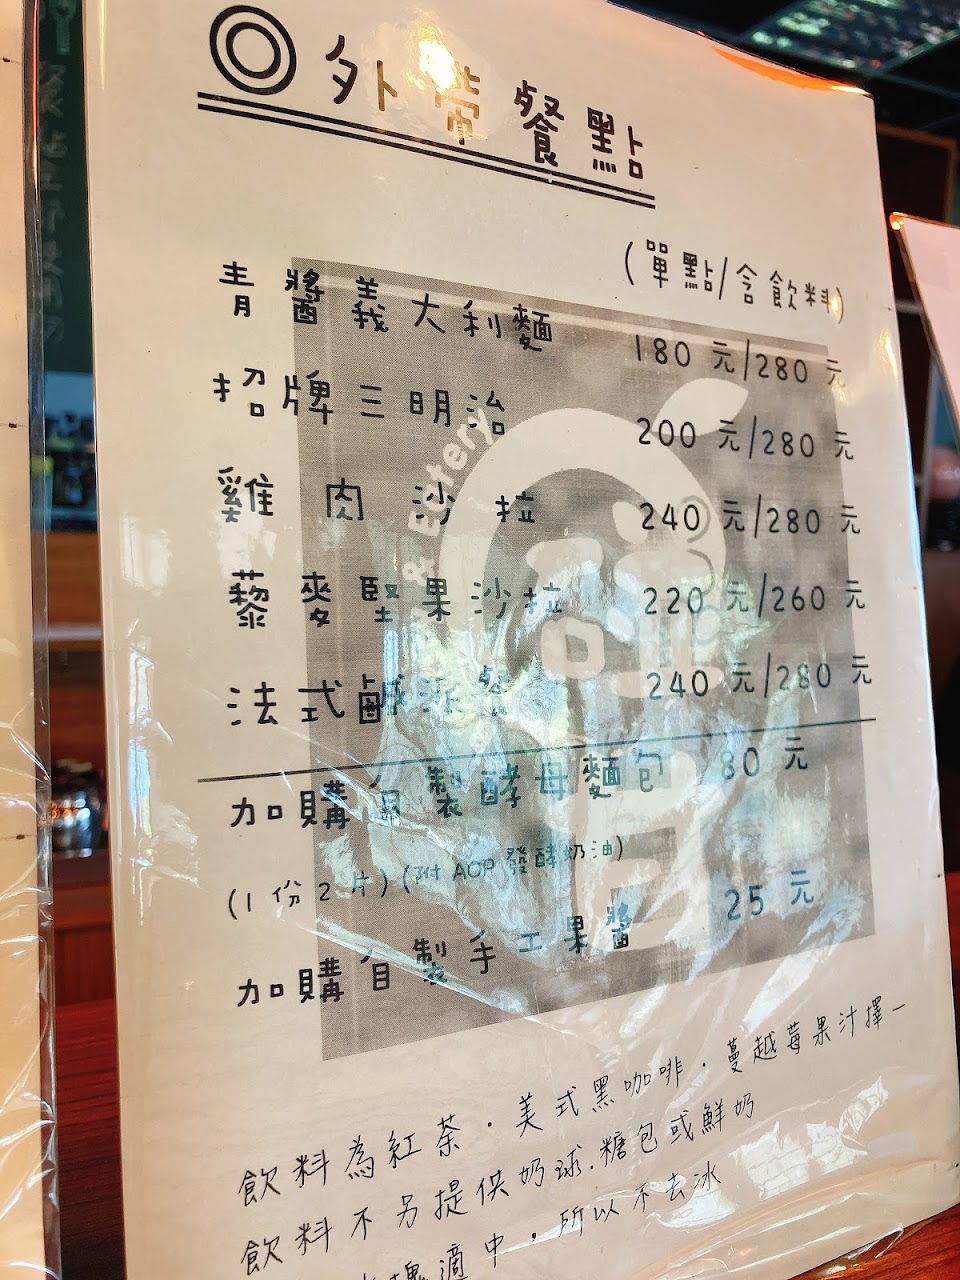 ◎外帶餐點
(單點/含飲料)
青醬義大利麵 180 元/280 元
招牌三明治 200 元/280 元
雞肉沙拉 240 元/280 元
藜麥堅果沙拉 220 元/260 元
法式鹹派餐 240 元/280 元
加購自製酵母麵包 80 元
(1份2片)(附 AOP 發酵奶油)
加購自製手工果醬 25 元
飲料為紅茶．美式黑咖啡．蔓越莓果汁擇一
飲料不另提供奶球.糖包或鮮奶
塊適中，所以不去冰
& Eatery